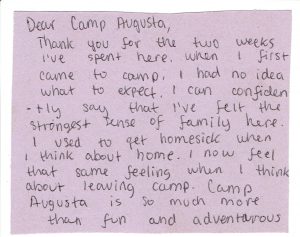 Dear Camp Augusta,
Thank you for the two weeks
I've spent here. When I first
came to camp, I had no idea
what to expect. I can confiden
-tly say that I've felt the
strongest sense of family here.
I used to get homesick when
I think about home. I now feel
that same feeling when I think
about leaving camp. Camp
Augusta is so much more
than fun and adventurous